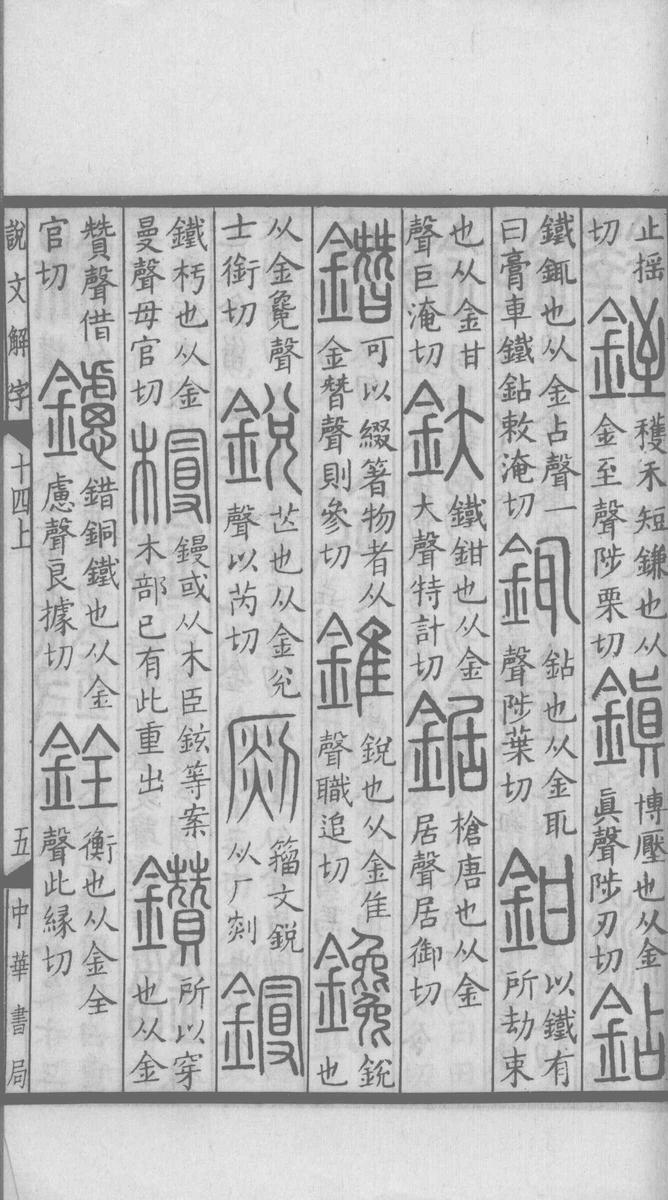 止搖
切
銍
穫禾短鎌也从
金至聲陟栗切
鎮
博壓也从金
眞聲陟刃切
鉆
鐵銸也从金占聲一
曰膏車鐵鉆敕淹切
銸
鉆也从金耴
聲陟葉切
鉗
以鐵有
所劫束
也从金甘
聲巨淹切
釱
鐵鉗也从金
大聲特計切
鋸
槍唐也从金
居聲居御切
鐕
可以綴箸物者从
金朁聲則參切
錐
銳也从金隹
聲職追切
鑱
銳
也
从金毚聲
士銜切
銳
芒也从金兌
聲以芮切
㓹
籀文銳
从厂剡
鏝
鐵杇也从金
曼聲母官切
槾
鏝或从木臣鉉等案
木部已有此重出
鑽
所以穿
也从金
贊聲借
官切
鑢
錯銅鐵也从金
慮聲良據切
銓
衡也从金全
聲此緣切
說文解字
十四上
五
中華書局